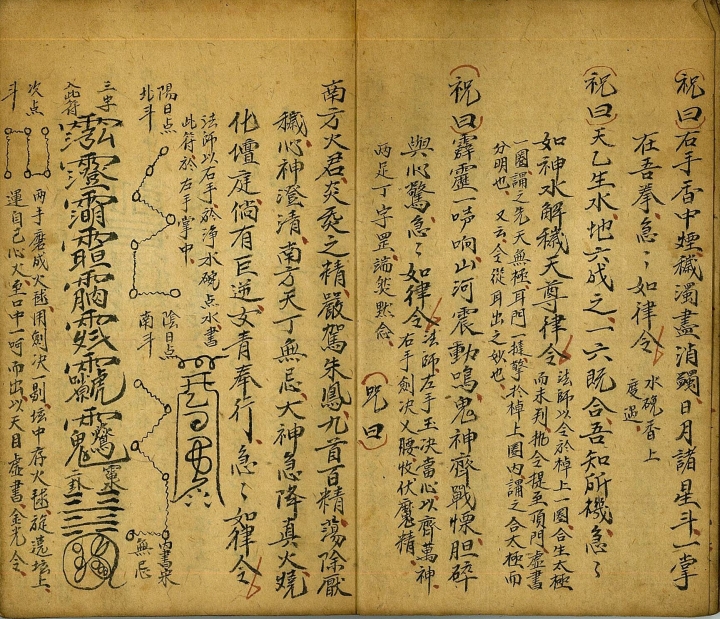 祝曰右手香中煙穢濁盡消蠲日月諸星斗一掌
在吾拳急々如律令
水碗香上
度過
祝曰天乙生水地六成之一六既合吾知所機急々
如神水解穢天尊律令
法師以令於棹上一圈合生太極
而未判抛令提至頂門虛書
一圈謂之先天無極耳門一撻擊於棹上圈內謂之合太極而
分明也又云令從耳出之妙也
祝曰霹靂一声响山河震動鳴鬼神齊戰慄胆碎
與心驚急々如律令
法師左手玉决當心以齊萬神
右手劍决义腰收伏魔精
兩足丁字罡端然黙念
咒曰
南方火君炎炎之精嚴駕朱鳳九首百精蕩除厭
穢心神澄清南方天丁無忌大神急降真火燒
化壇庭倘有巨逆女青奉行急々如律令
法師以右手於浄水碗点水書
此符於左手掌中
陽日点
北斗
陰日点
南斗
三字
入此符
次点
斗
無忌
兩手磨成火毬用劍决剔坛中存火毬旋遶坛上
運自己心火至口中一呵而出以天目虛書金光令